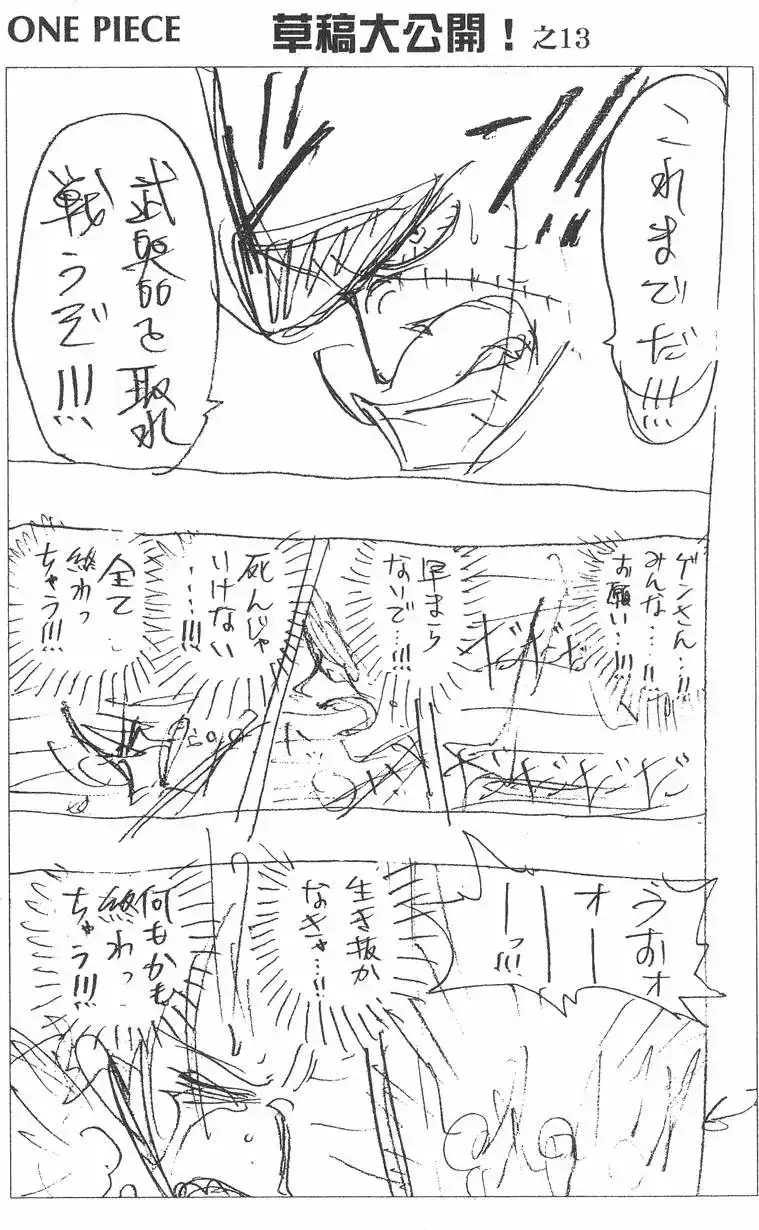 ONE PIECE 草稿大公開！ 之13
これまでだ!!!
武器を取れ
戦うぞ!!!
ゲンさん…!!
みんな…!!
お願い…!!!
早まら
ないで…!!!
死んじゃ
いけない
…!!!
全て
終わっ
ちゃう!!!
うおォ
オー
ーーっ!!!
生き抜か
なきゃ…!!
何もかも
終わっ
ちゃう!!!